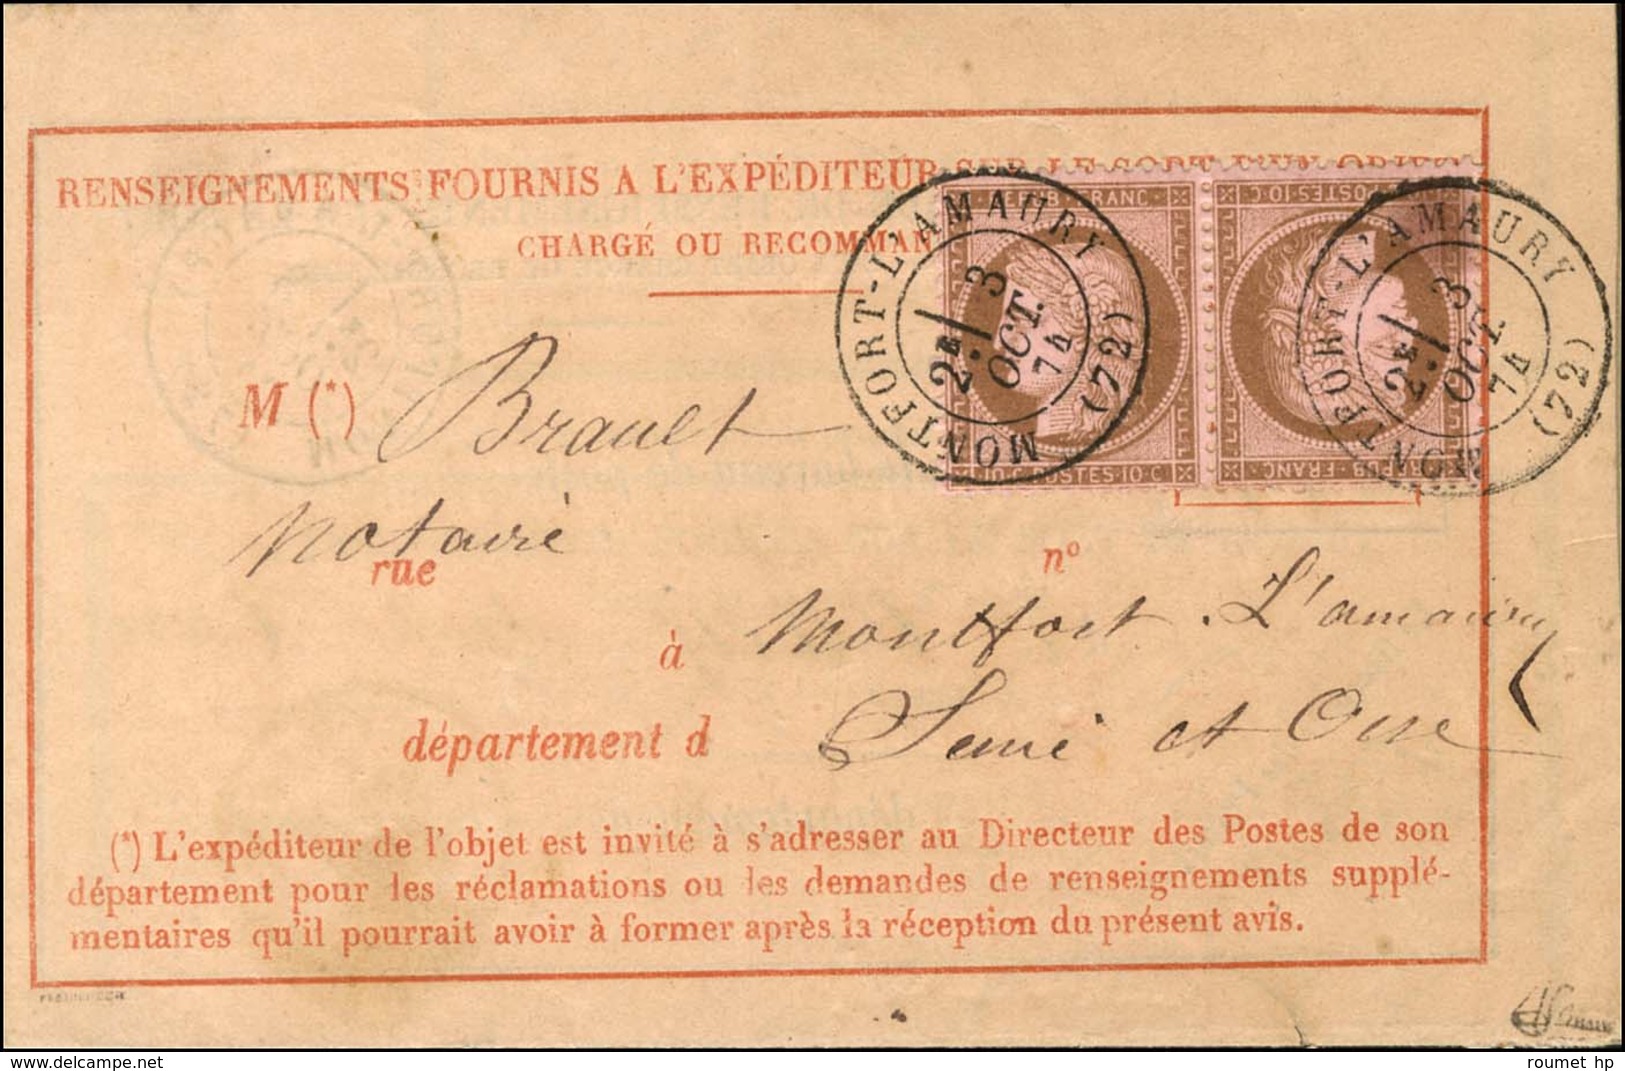 RENSEIGNEMENTS FOURNIS A L'EXPÉDITEUR SUR LE SORT D'UN OBJET
CHARGÉ OU RECOMMAN
REPUB. FRANC
10.C. POSTES.10.C
POSTES.10.C
REPUB. FRANC
MONTFORT-L'AMAURY (72)
2E/ 3 OCT. 74
MONTFORT-L'AMAURY (72)
2E/ 3 OCT. 74
M (*) Brault
Notaire
rue nº
à Montfort L'amaury
département d Seine et Oise
(*) L'expéditeur de l'objet est invité à s'adresser au Directeur des Postes de son
département pour les réclamations ou les demandes de renseignements supplé-
mentaires qu'il pourrait avoir à former après la réception du présent avis.
roumet hp